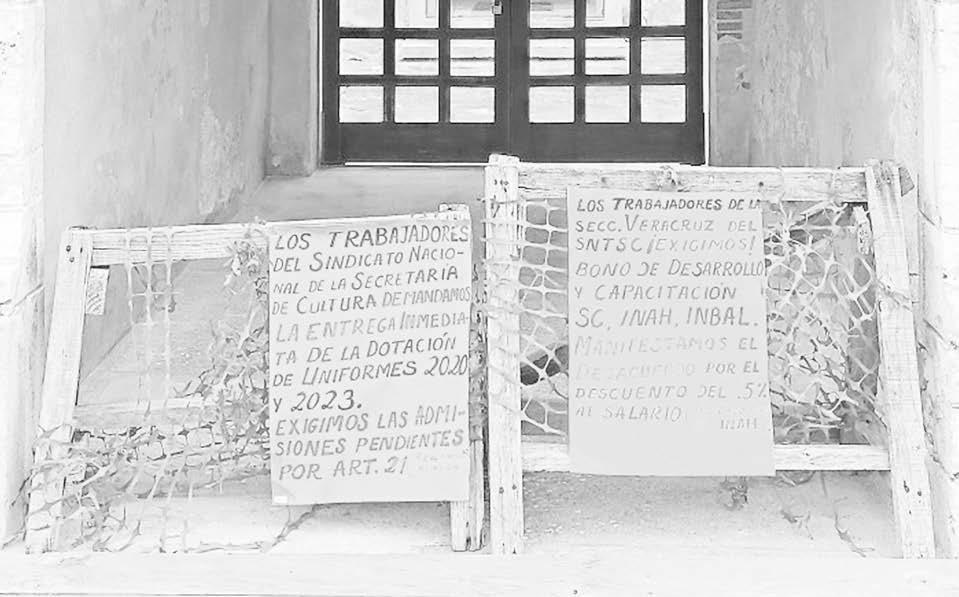 LOS TRABAJADORES
DEL SINDICATO NACIO-
NAL DE LA SECRETARÍA
DE CULTURA DEMANDAMOS
LA ENTREGA INMEDIA-
TA DE LA DOTACIÓN
DE UNIFORMES 2020
Y 2023.
EXIGIMOS LAS ADMI-
SIONES PENDIENTES
POR ART. 21
LOS TRABAJADORES DE LA
SECC. VERACRUZ DEL
SNTSC ¡EXIGIMOS!
BONO DE DESARROLLO
Y CAPACITACIÓN
SC, INAH, INBAL.
MANIFESTAMOS EL
DESACUERDO POR EL
DESCUENTO DEL .5%
AL SALARIO
INAH